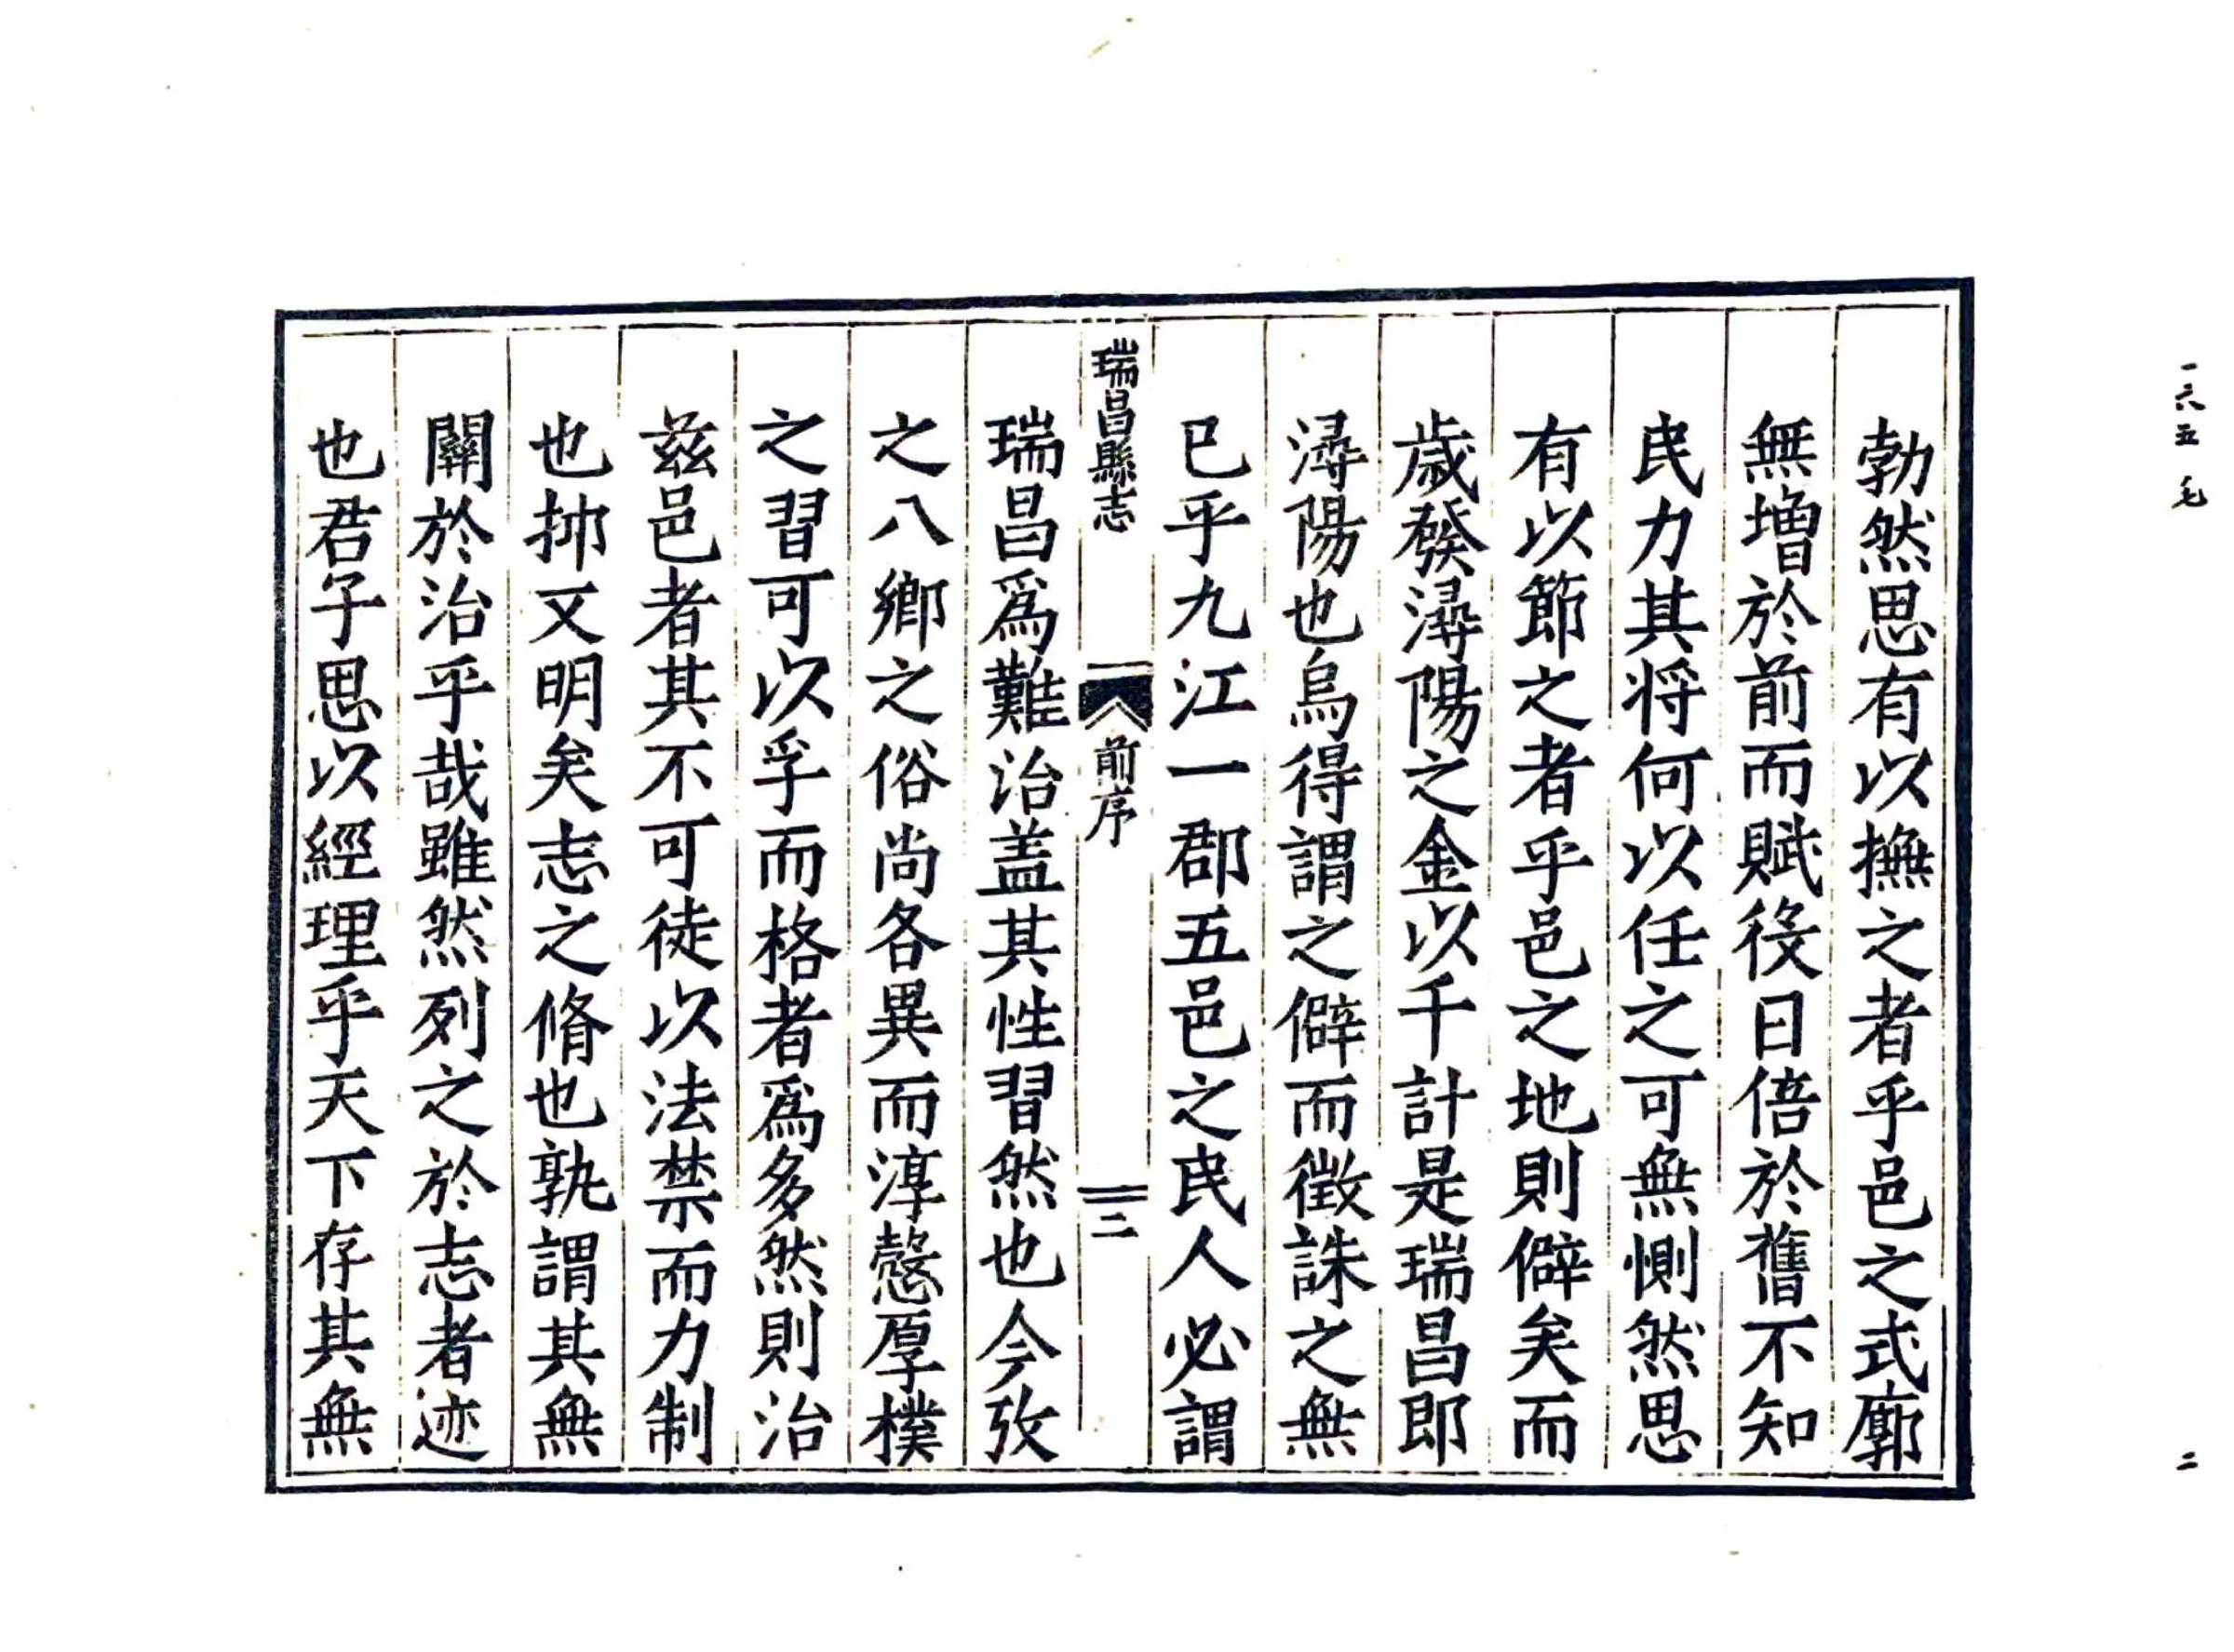 勃然思有以撫之者乎邑之式廓
無增於前而賦役日倍於舊不知
民力其将何以任之可無惻然思
有以節之者乎邑之地則僻矣而
歲發潯陽之金以千計是瑞昌即
潯陽也烏得謂之僻而徵誅之無
已乎九江一郡五邑之民人必謂
瑞昌縣志
前序
二
瑞昌爲難治盖其性習然也今攷
之八鄉之俗尚各異而淳慤厚樸
之習可以孚而格者爲多然則治
兹邑者其不可徒以法禁而力制
也抑又明矣志之脩也孰謂其無
關於治乎哉雖然列之於志者迹
也君子思以經理乎天下存其無
一六五七
二